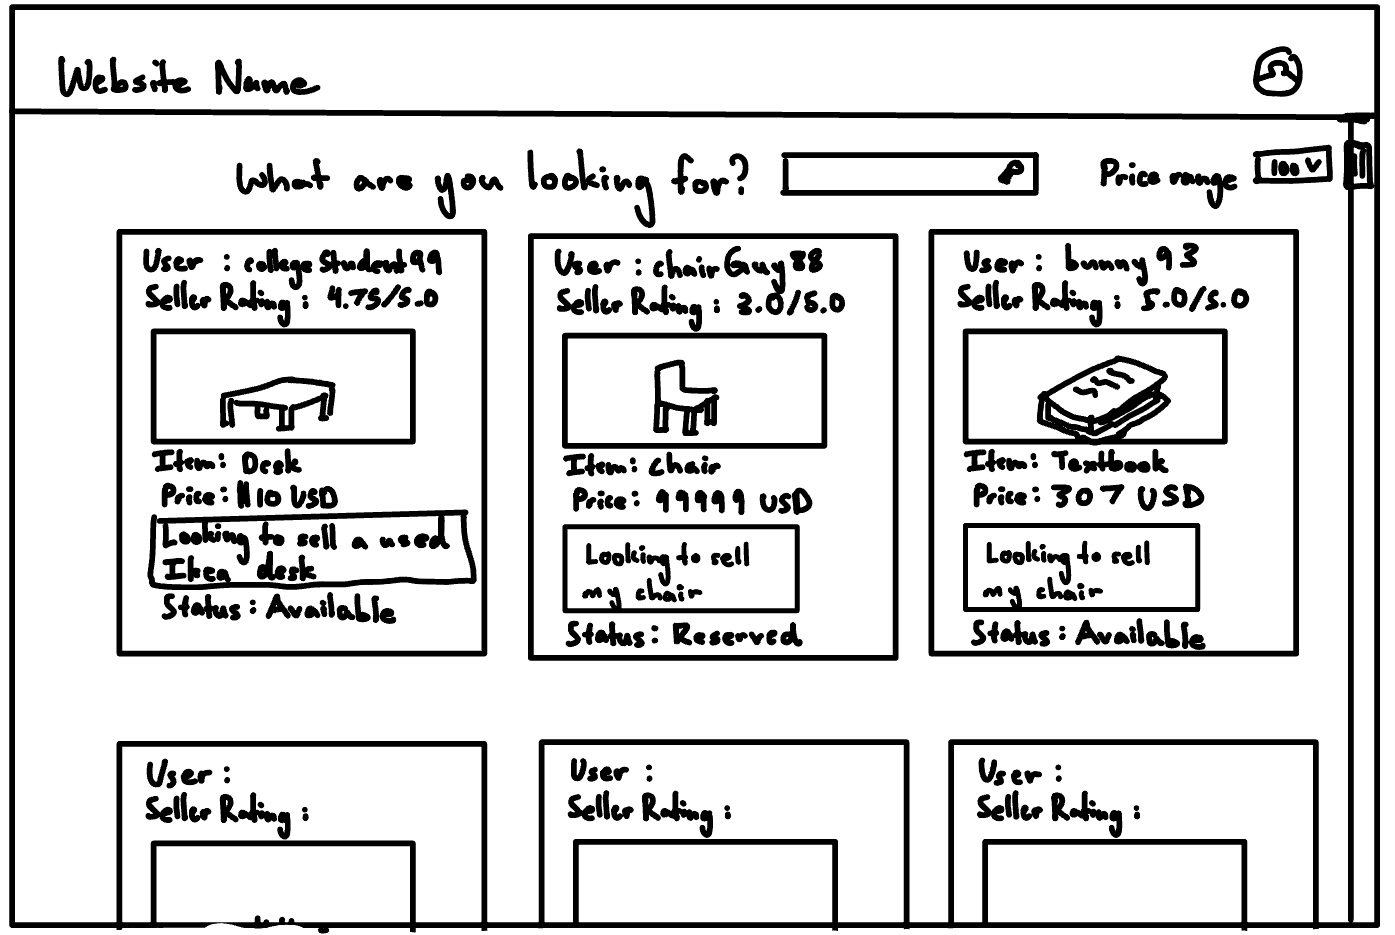 Website Name
What are you looking for?
Price range
100 V
User : collegeStudent99
Seller Rating : 4.75/5.0
Item: Desk
Price: 110 USD
Looking to sell a used
Ikea desk
Status: Available
User : chairGuy88
Seller Rating : 3.0/5.0
Item: Chair
Price: 99999 USD
Looking to sell
my chair
Status: Reserved
User : bunny93
Seller Rating : 5.0/5.0
Item: Textbook
Price: 307 USD
Looking to sell
my chair
Status: Available
User :
Seller Rating :
User :
Seller Rating :
User :
Seller Rating :